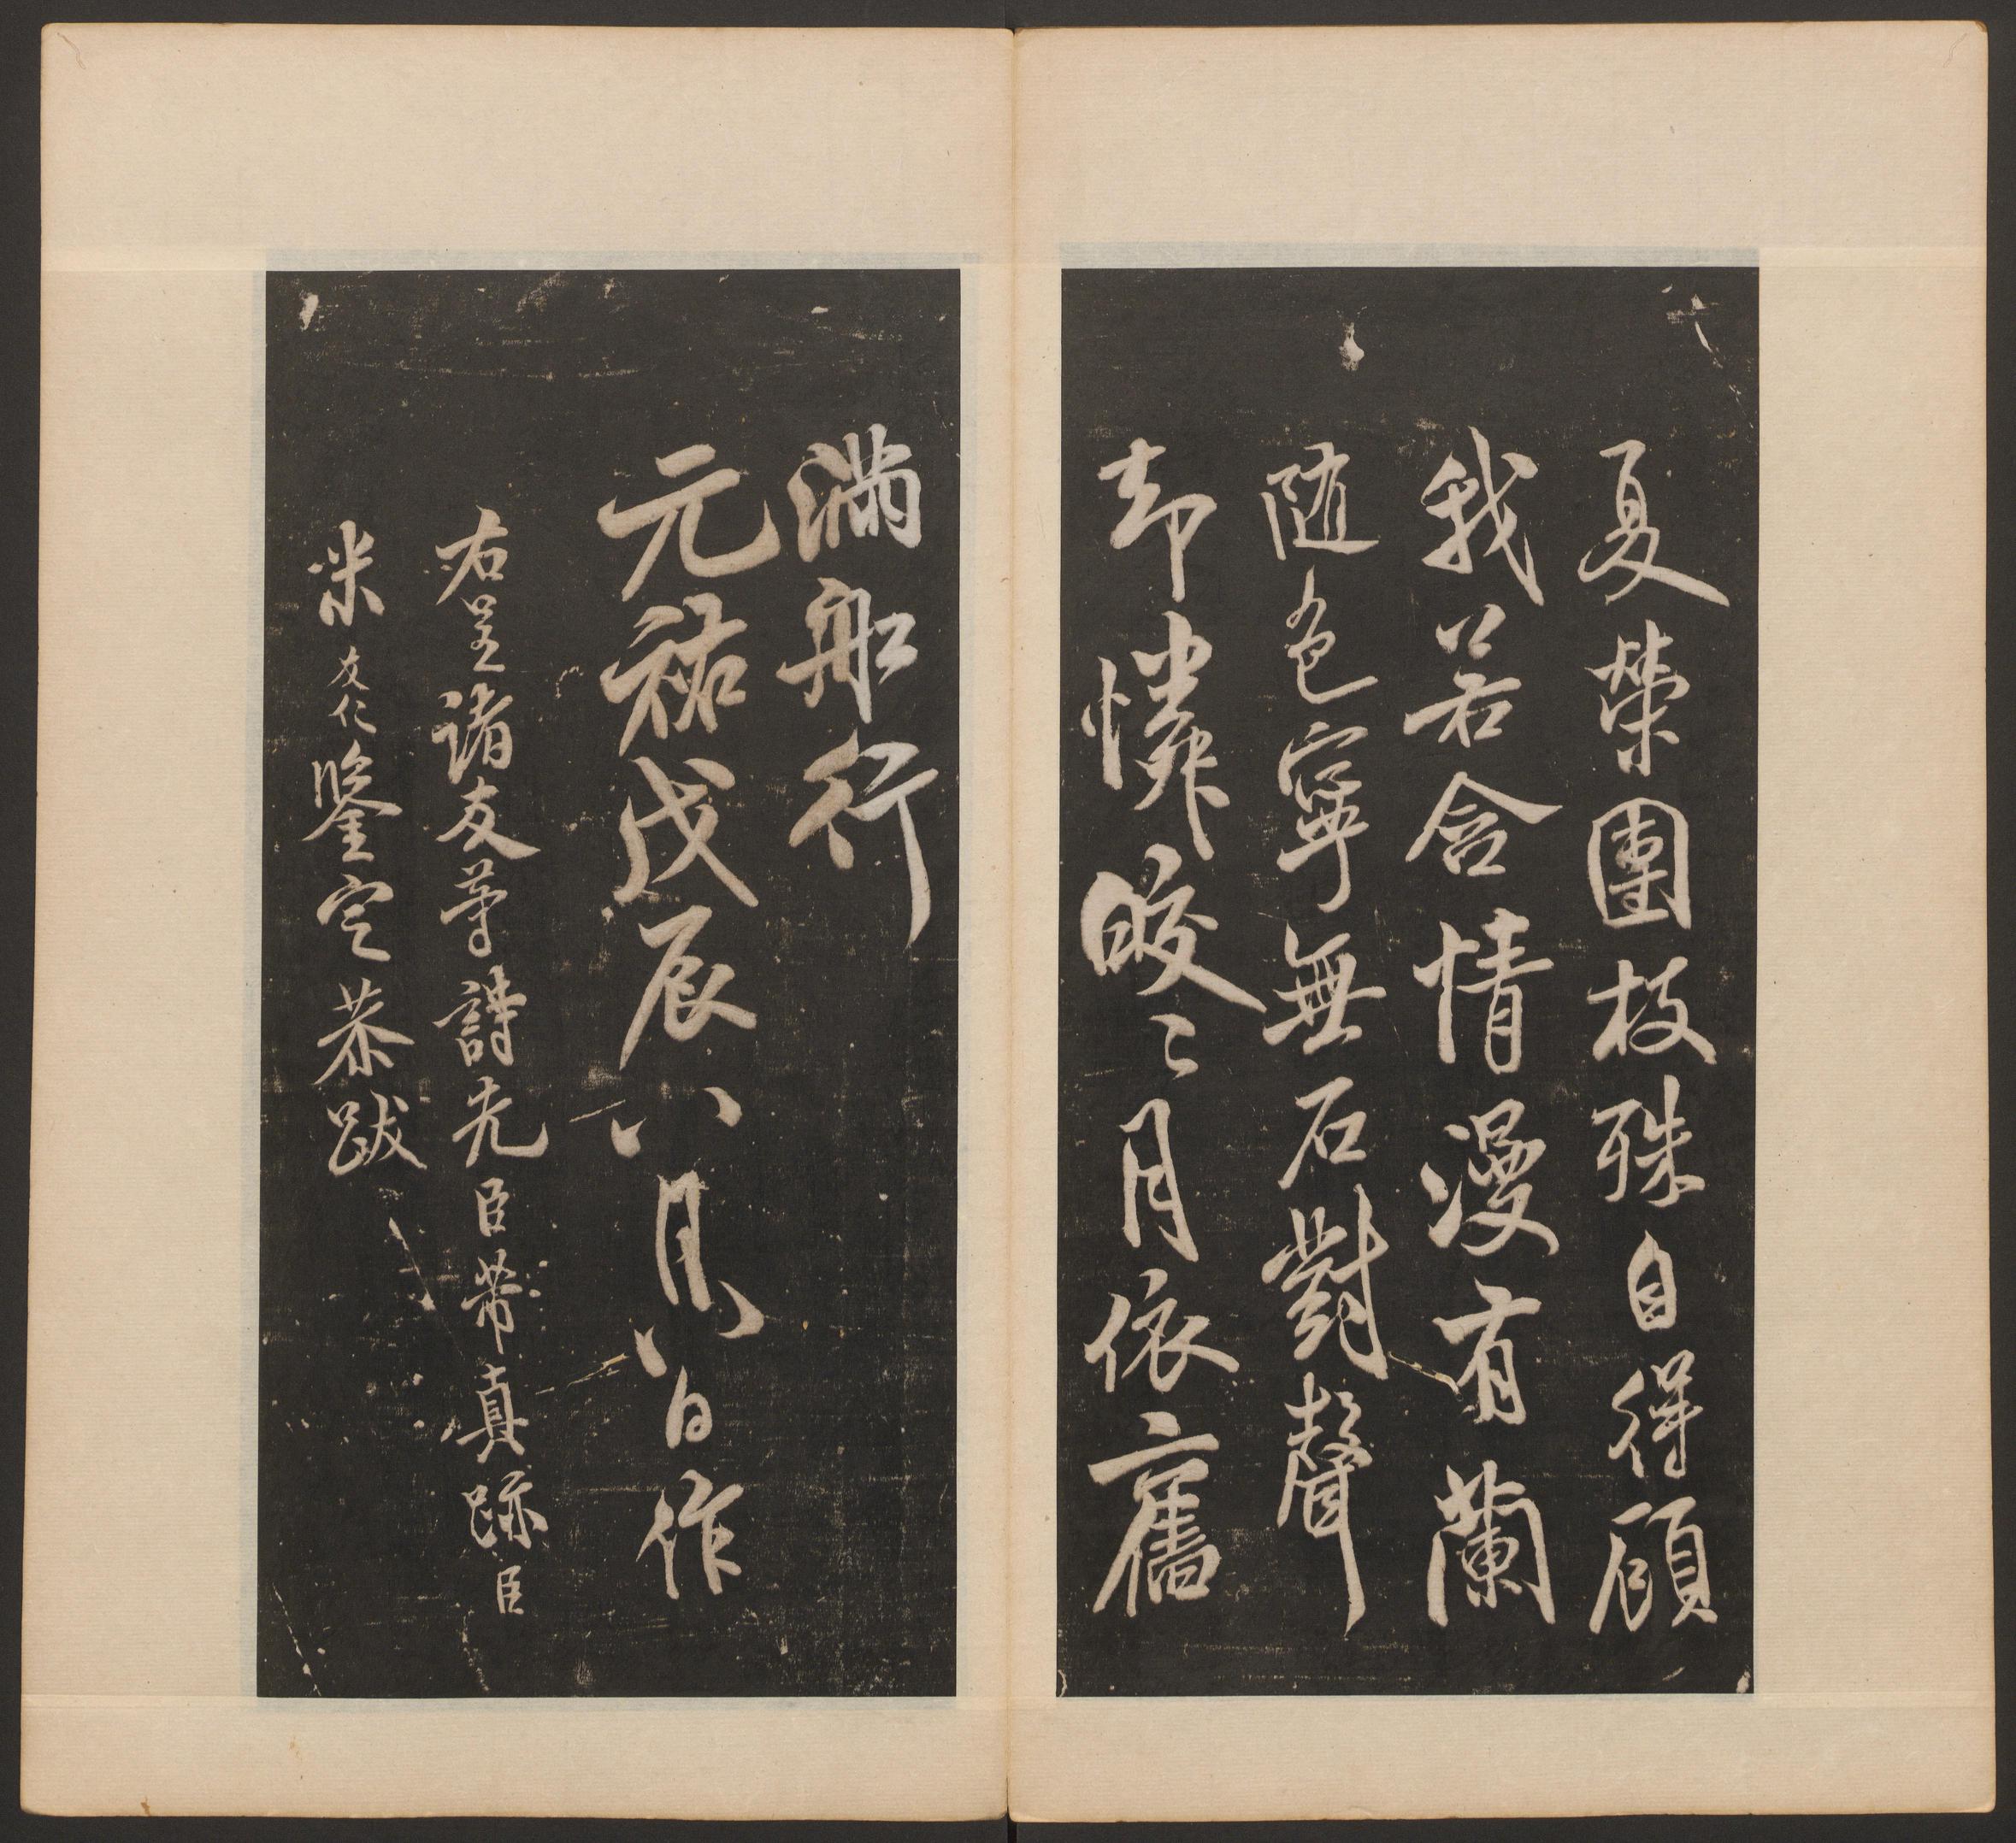 夏榮團枝殊自得顧
我若含情漫有蘭
隨色寧無石對聲
却憐皎〻月依舊
滿船行
元祐戊辰八月八日作
右呈諸友等詩先臣芾真跡臣
米友仁鑒定恭跋